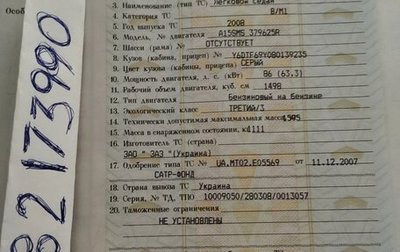 Особ
3. Наименование (тип ТС) Легковой седан
4. Категория ТС B/M1
5. Год выпуска ТС 2008
6. Модель, № двигателя A15SMS 379625R
7. Шасси (рама) № ОТСУТСТВУЕТ
8. Кузов (кабина, прицеп) № Y6DTF69Y080139235
9. Цвет кузова (кабины, прицепа) СЕРЫЙ
10. Мощность двигателя, л. с. (кВт) 86 (63.3)
11. Рабочий объем двигателя, куб. см 1498
12. Тип двигателя Бензиновый на бензине
13. Экологический класс ТРЕТИЙ/3
14. Технически допустимая максимальная масса 1595
15. Масса в снаряженном состоянии, кг 1111
16. Изготовитель ТС (страна)
ЗАО " ЗАЗ "(Украина)
17. Одобрение типа ТС № UA.MT02.E05569 от 11.12.2007
САТР-ФОНД
18. Страна вывоза ТС Украина
19. Серия, № ТД, ТПО 10009050/280308/0013057
20. Таможенные ограничения
НЕ УСТАНОВЛЕНЫ
82173990